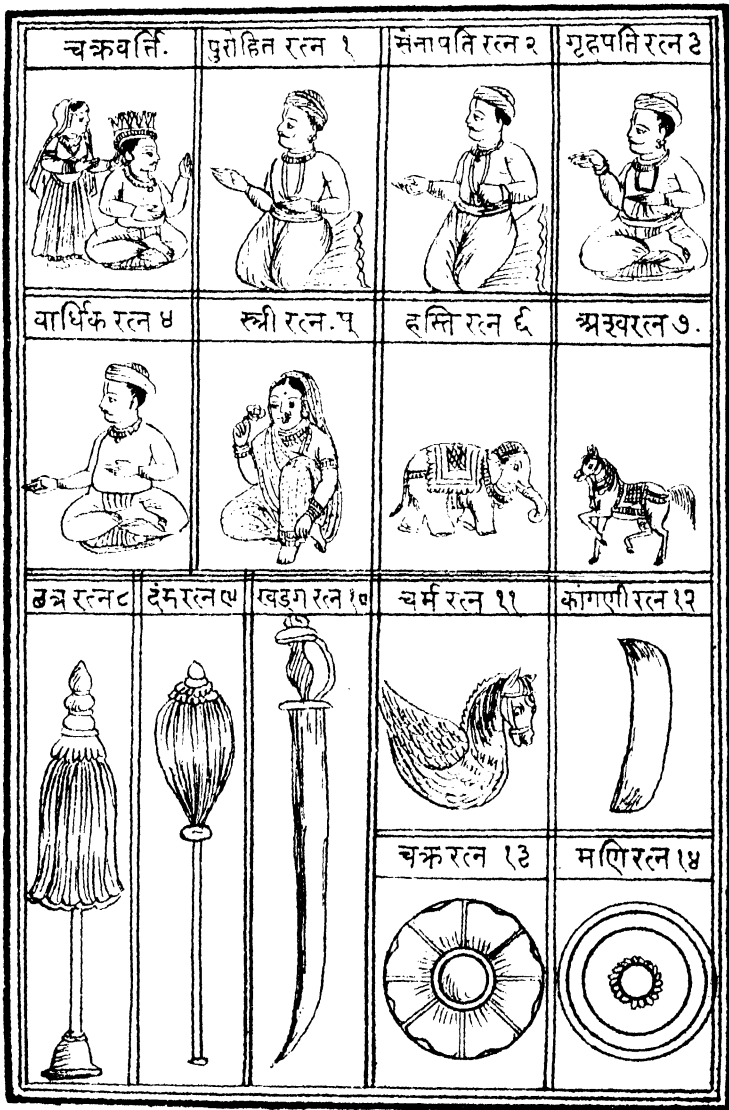 चक्रवर्त्ति.
पुरोहित रत्न १
सेनापति रत्न २
गृहपति रत्न ३
वार्धिक रत्न ४
स्त्री रत्न. ५
हस्ति रत्न ६
अश्वरत्न ७.
छत्र रत्न ८
दंमरत्न ९
खड्ग रत्न १०
चर्म रत्न ११
कांगणी रत्न १२
चक्र रत्न १३
मणि रत्न १४